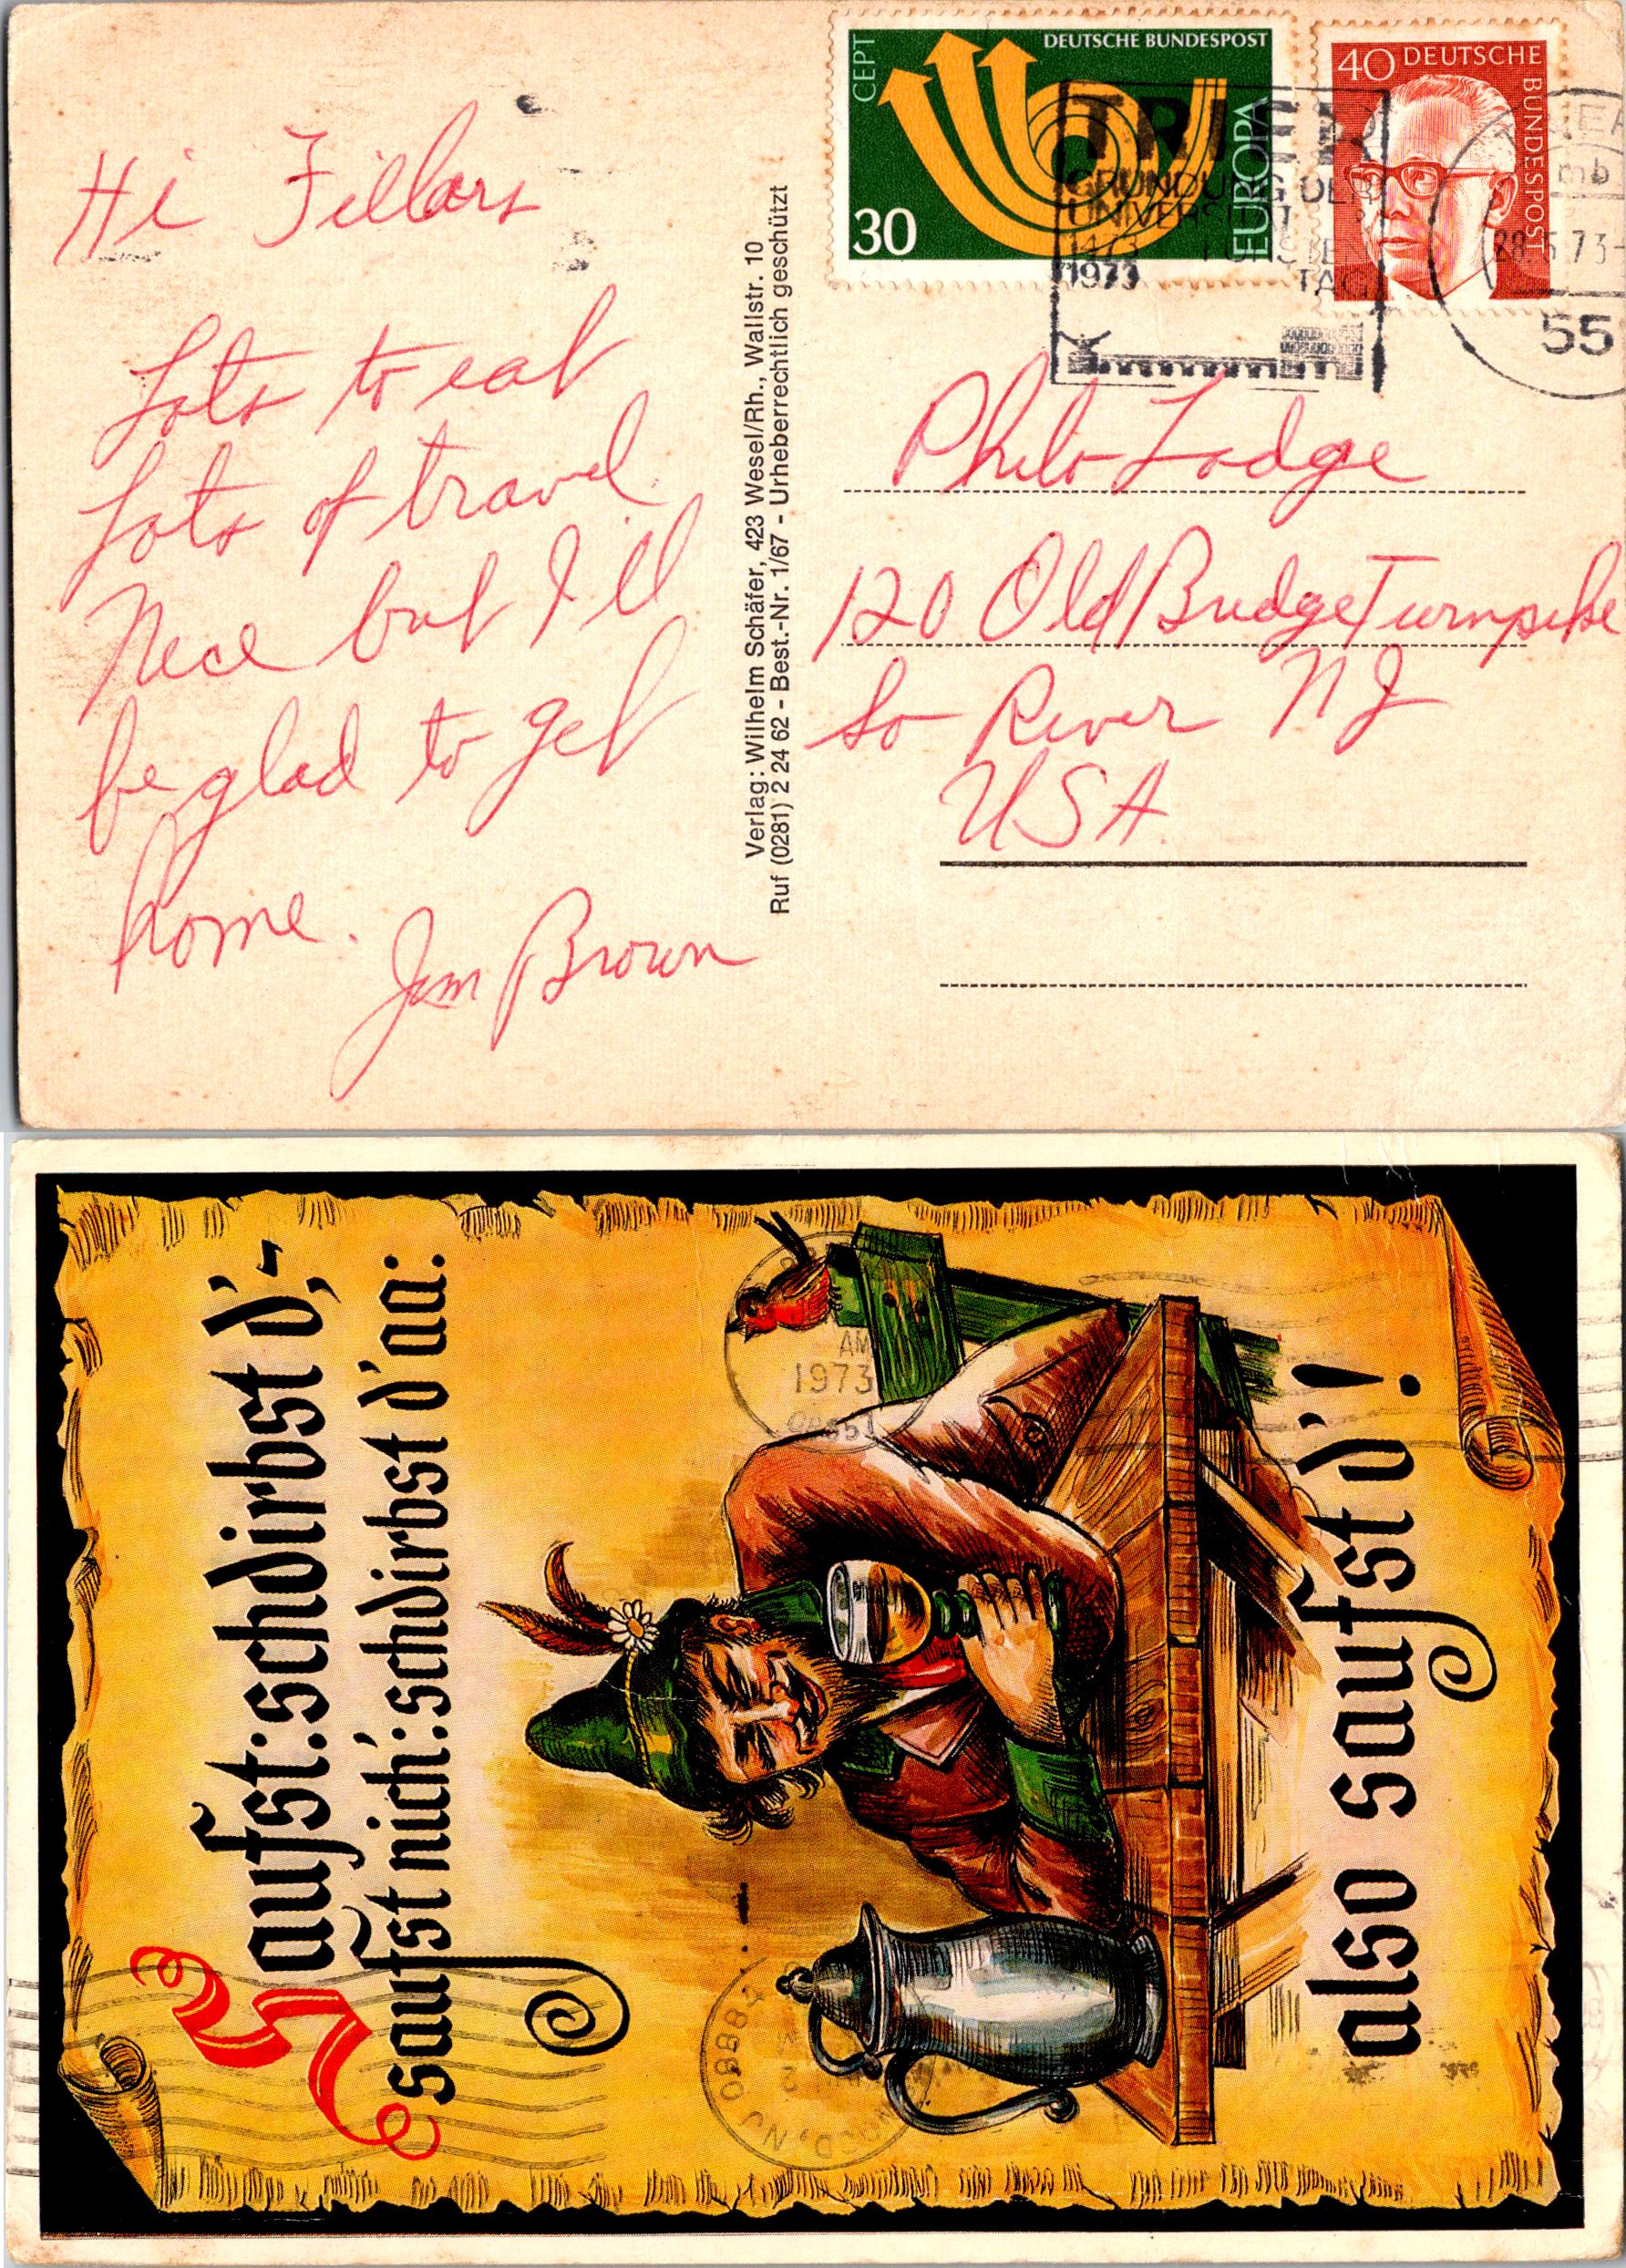 Hi Fellars
Lots to eat
Lots of travel.
Nice but I'll
be glad to get
home.
Jim Brown
Verlag: Wilhelm Schäfer, 423 Wesel/Rh., Wallstr. 10
Ruf (0281) 2 24 62 - Best.-Nr. 1/67 - Urheberrechtlich geschützt
CEPT
DEUTSCHE BUNDESPOST
EUROPA
30
40 DEUTSCHE
BUNDESPOST
TRIER
GRÜNDUNG DER
UNIVERSITÄT
1473
1973
TAG
mb
28.5.73-
55
Philo Lodge
120 Old Bridge Turnpike
So River NJ
USA.
Saufst: schdirbst d',-
saufst nich': schdirbst d'aa:
also saufst d'!
AM
1973
NJ 088